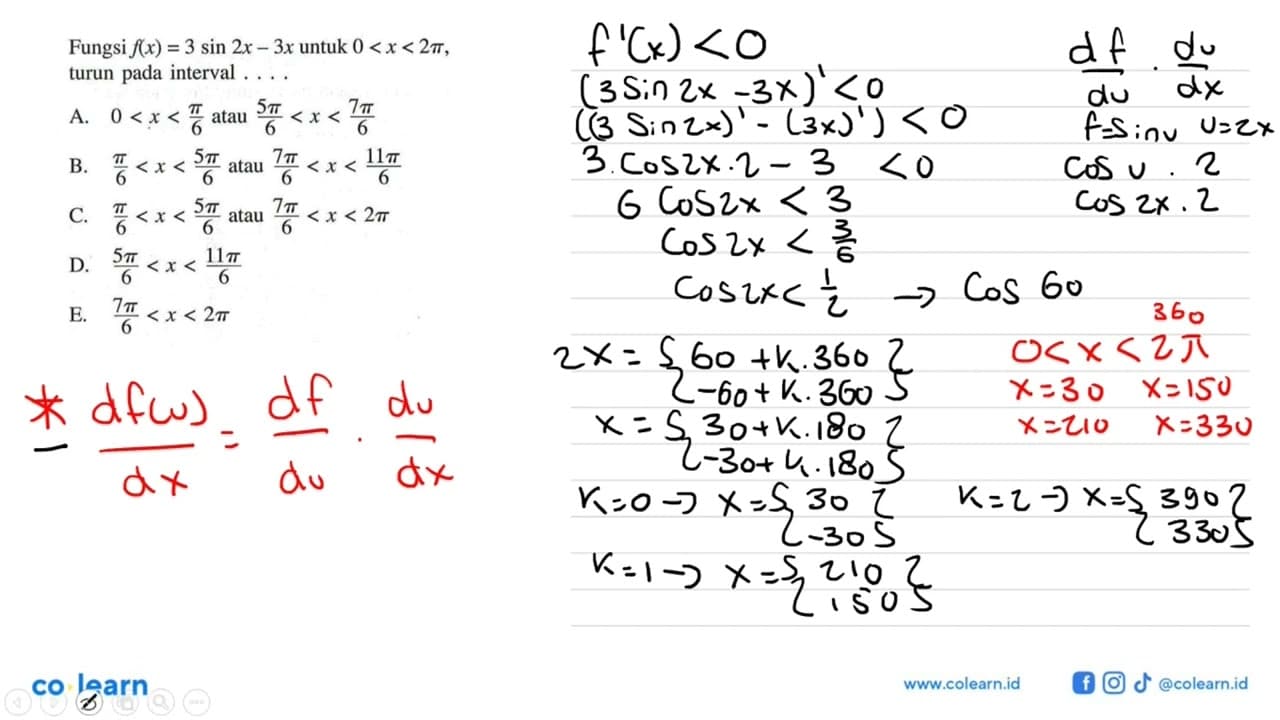 Fungsi f(x) = 3 sin 2x – 3x untuk 0 < x < 2π,
turun pada interval . . . .
A. 0 < x < π/6 atau 5π/6 < x < 7π/6
B. π/6 < x < 5π/6 atau 7π/6 < x < 11π/6
C. π/6 < x < 5π/6 atau 7π/6 < x < 2π
D. 5π/6 < x < 11π/6
E. 7π/6 < x < 2π
* df(u)/dx = df/du . du/dx
f'(x) < 0
(3 Sin 2x - 3x)' < 0
((3 Sin 2x)' - (3x)') < 0
3. Cos 2x . 2 - 3 < 0
6 Cos 2x < 3
Cos 2x < 3/6
Cos 2x < 1/2 → Cos 60
df/du . du/dx
f = Sin u U = 2x
Cos u . 2
Cos 2x . 2
2x = { 60 + k. 360 }
{ -60 + k. 360 }
x = { 30 + k. 180 }
{ -30 + k. 180 }
k = 0 → x = { 30 }
{ -30 }
k = 1 → x = { 210 }
{ 150 }
360
0 < x < 2π
x = 30 x = 150
x = 210 x = 330
k = 2 → x = { 390 }
{ 330 }
co learn
www.colearn.id
@colearn.id